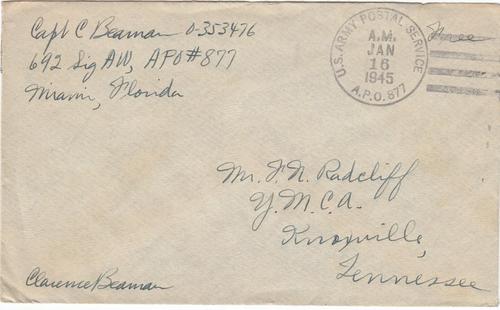 Capt C Beaman O-353476
692 Sig AW, APO #877
Miami, Florida
U.S. ARMY POSTAL SERVICE
A.M.
JAN
16
1945
A.P.O. 877
Free
Mr. F. N. Radcliff
Y.M.C.A.
Knoxville,
Tennessee
Clarence Beaman